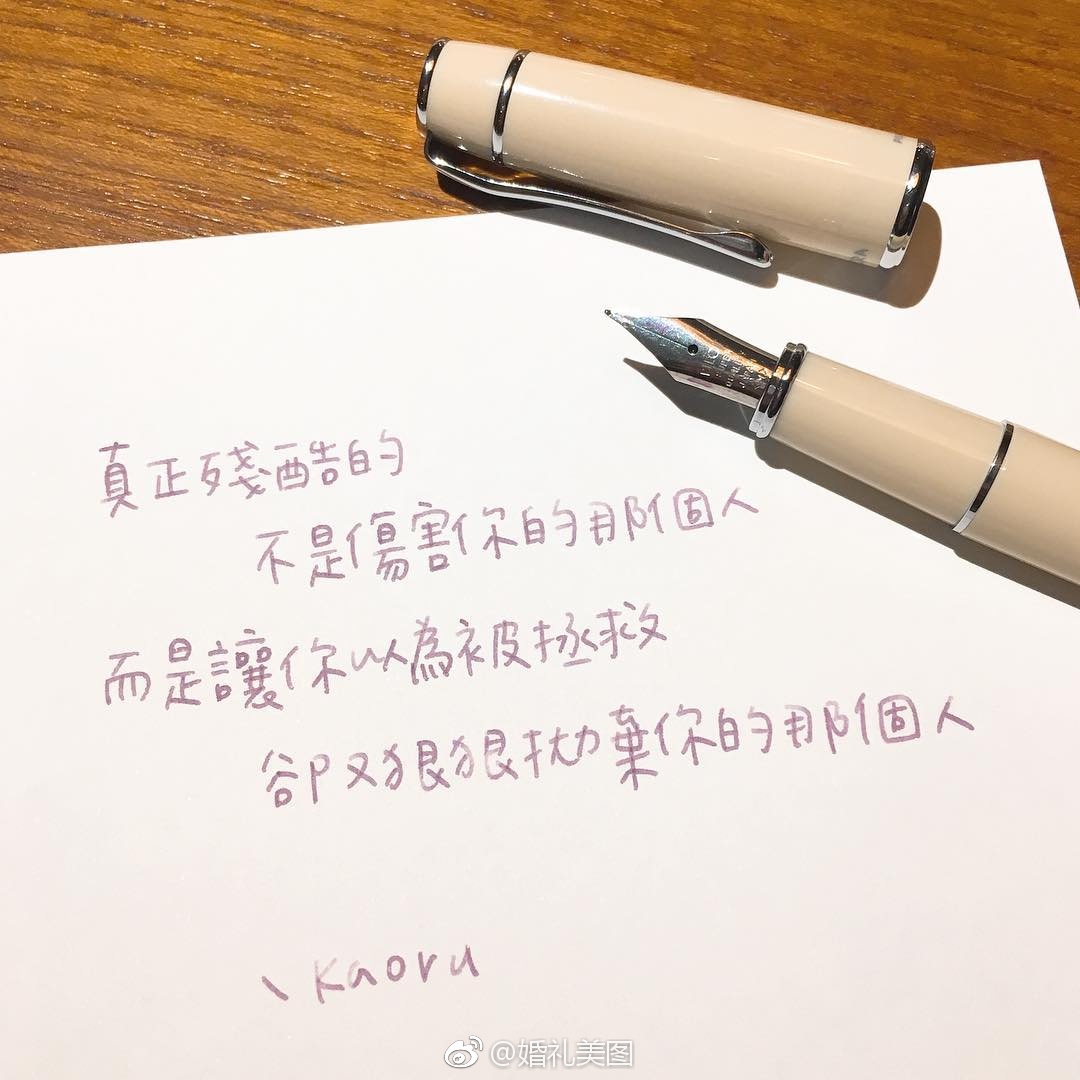 真正殘酷的
不是傷害你的那個人
而是讓你以為被拯救
卻又狠狠拋棄你的那個人
、Kaoru
@婚礼美图